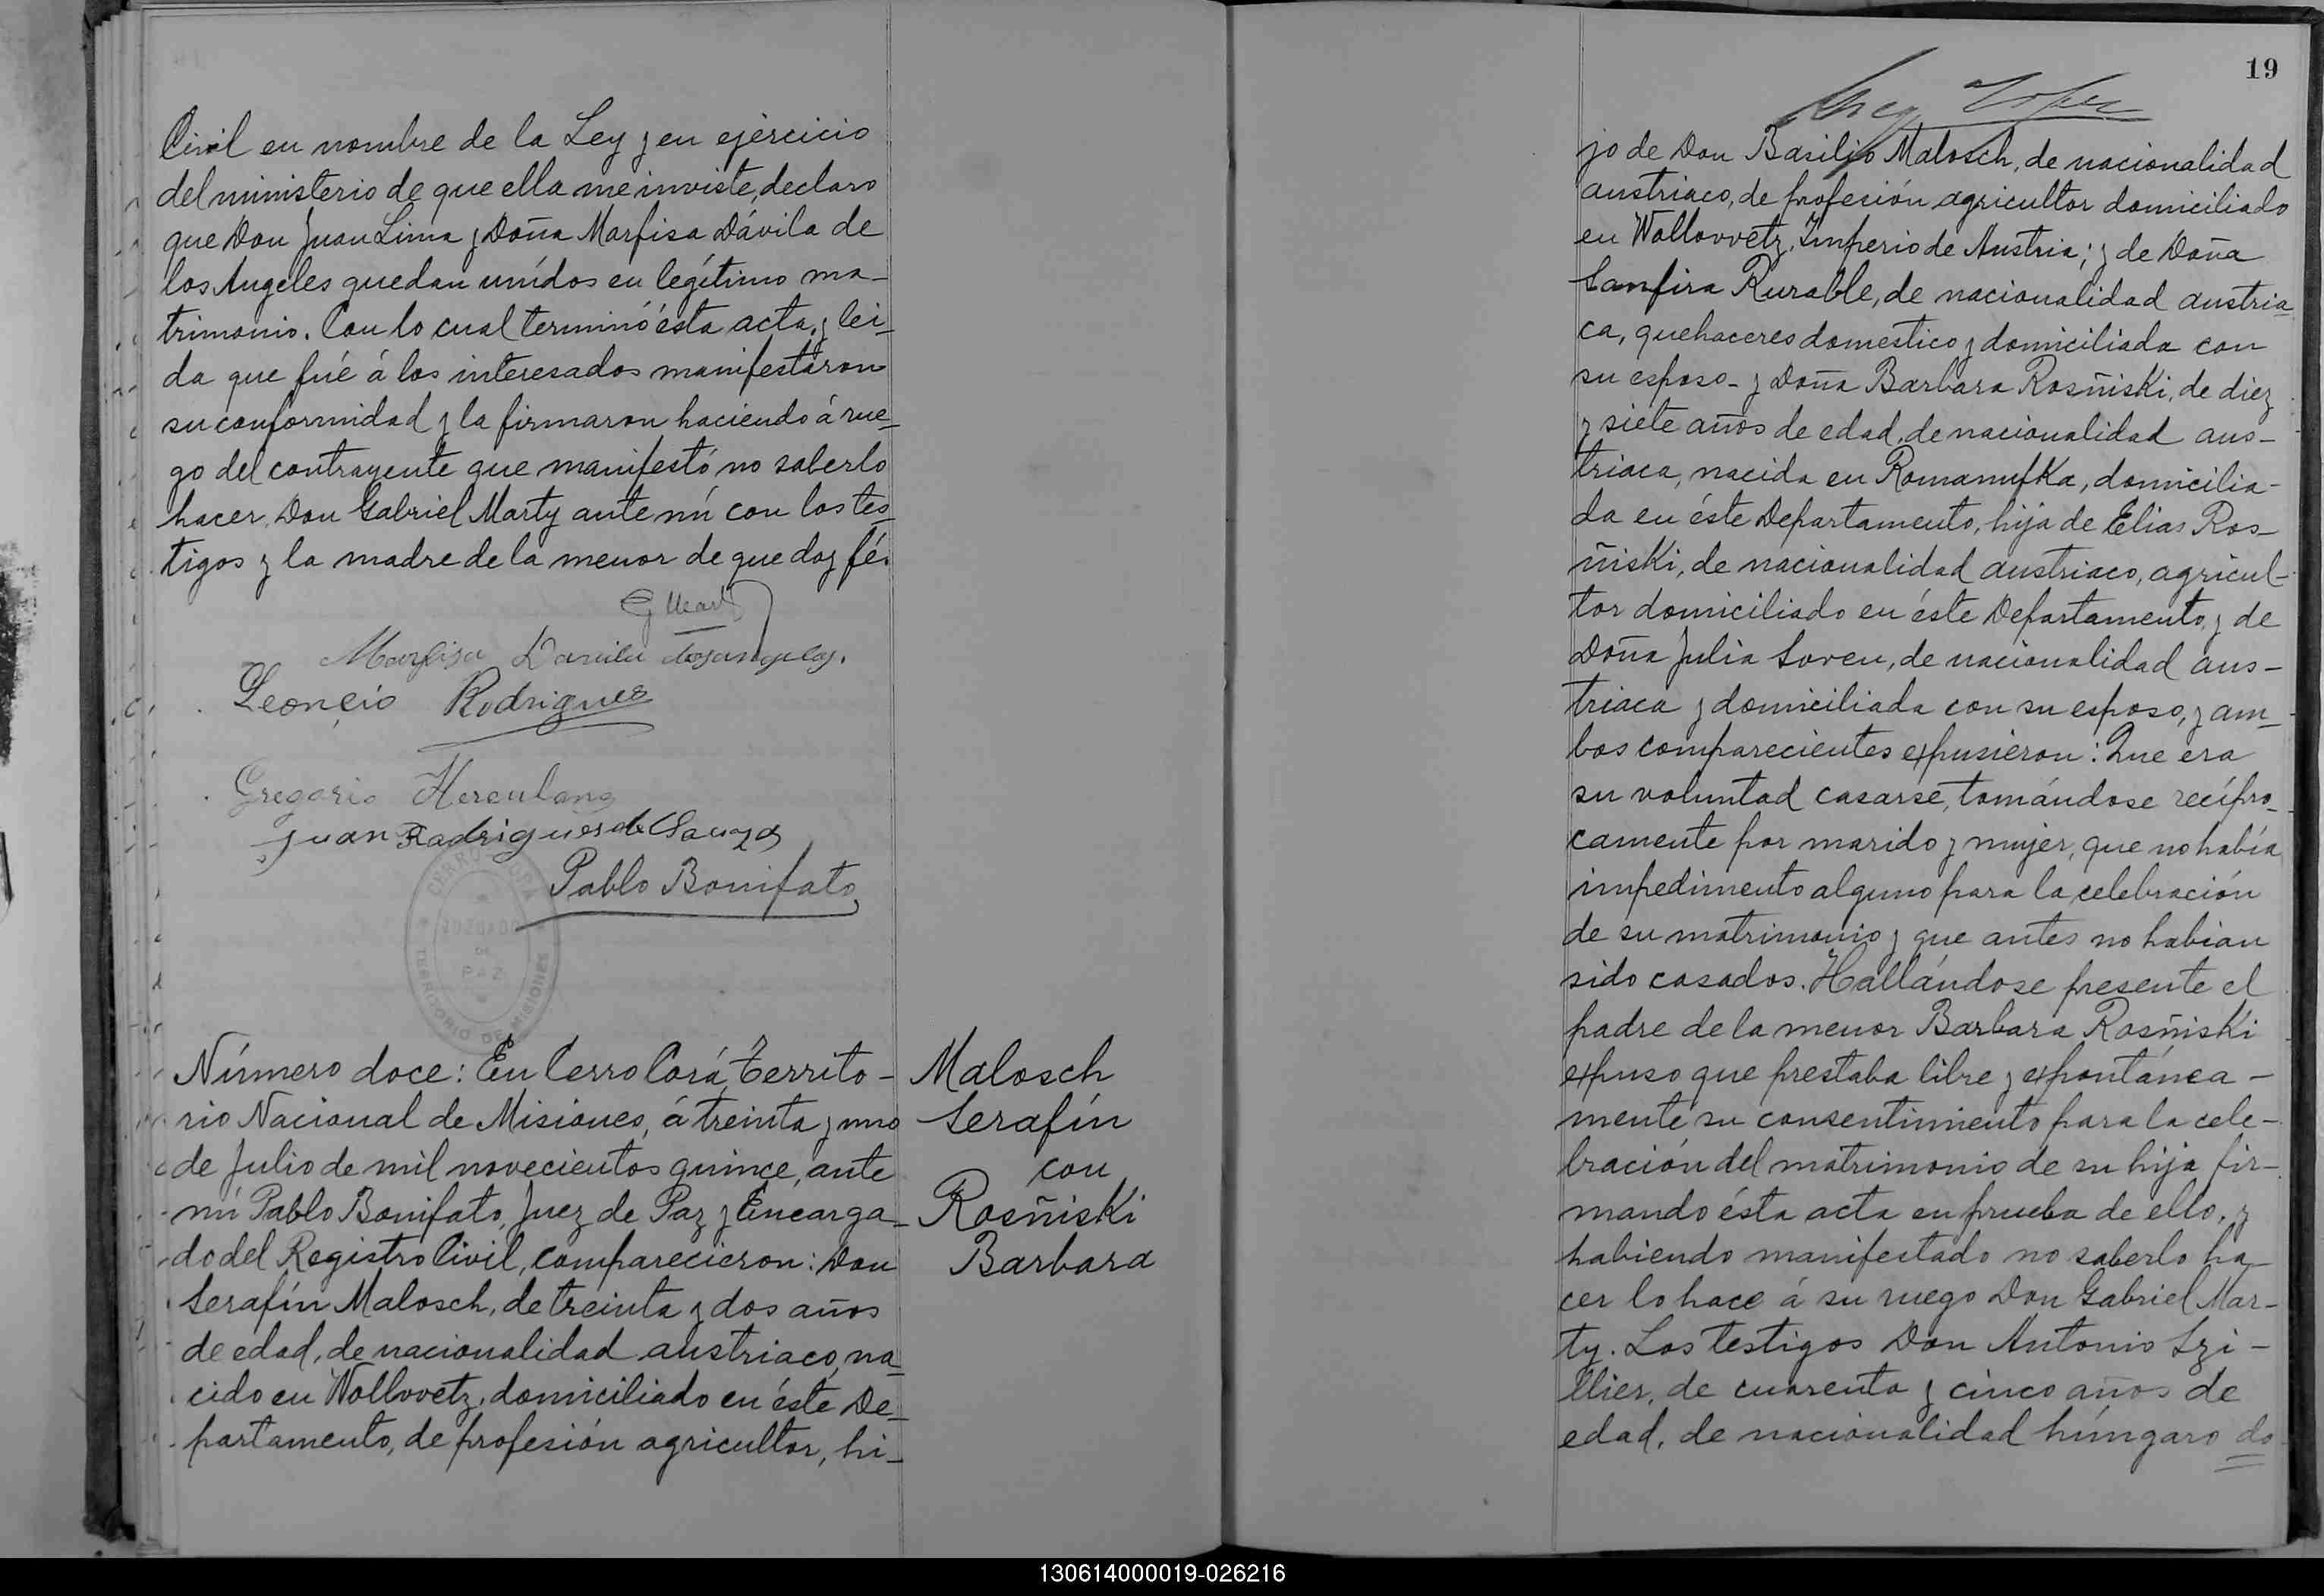 Civil en nombre de la Ley y en ejercicio
del ministerio de que ella me inviste, declaro
que Don Juan Lima y Doña Marfisa Dávila de
los Angeles quedan unídos en legítimo ma-
trimonio. Con lo cual terminó ésta acta, y lei-
da que fué á los interesados manifestáron
su conformidad y la firmaron haciendo á rue-
go del contrayente que manifestó no saberlo
hacer, Don Gabriel Marty ante mí con los tes-
tigos y la madre de la menor de que doy fé.
Marfisa Davila
Leoncio Rodrigues
Gregorio Herculano
Juan Rodrigues de Souza
Pablo Bonifato
CERRO CORA
JUZGADO
DE
PAZ
TERRITORIO DE MISIONES
Número doce: En Cerro Corá, Territo-
rio Nacional de Misiones, á treinta y uno
de Julio de mil novecientos quince, ante
mí Pablo Bonifato, Juez de Paz y Encarga-
do del Registro Civil, comparecieron: Don
Serafín Malosch, de treinta y dos años
de edad, de nacionalidad austriaco, na-
cido en Wollovetz, domiciliado en éste De-
partamento, de profesión agricultor, hi-
Malosch
Serafín
con
Rosñiski
Barbara
19
jo de Don Basilio Malosch, de nacionalidad
austriaco, de profesión agricultor domiciliado
en Wollovvetz, Imperio de Austria; y de Doña
Sanfira Rurable, de nacionalidad austria-
ca, quehaceres domestico y domiciliada con
su esposo - y Doña Barbara Rosñiski, de diez
y siete años de edad, de nacionalidad aus-
triaca, nacida en Romanufka, domicilia-
da en éste Departamento, hija de Elias Ros-
ñiski, de nacionalidad austriaco, agricul-
tor domiciliado en éste Departamento, y de
Doña Julia Soven, de nacionalidad aus-
triaca y domiciliada con su esposo, y am-
bos comparecientes expusieron: Que era
su voluntad casarse, tomándose recípro-
camente por marido y mujer, que no había
impedimento alguno para la celebración
de su matrimonio y que antes no habian
sido casados. Hallándose presente el
padre de la menor Barbara Rosñiski
expuso que prestaba libre y expontánea-
mente su consentimiento para la cele-
bración del matrimonio de su hija fir-
mando ésta acta en prueba de ello, y
habiendo manifestado no saberlo ha-
cer lo hace á su ruego Don Gabriel Mar-
ty. Los testigos Don Antonio Szi-
llier, de cuarenta y cinco años de
edad, de nacionalidad húngaro do
130614000019-026216